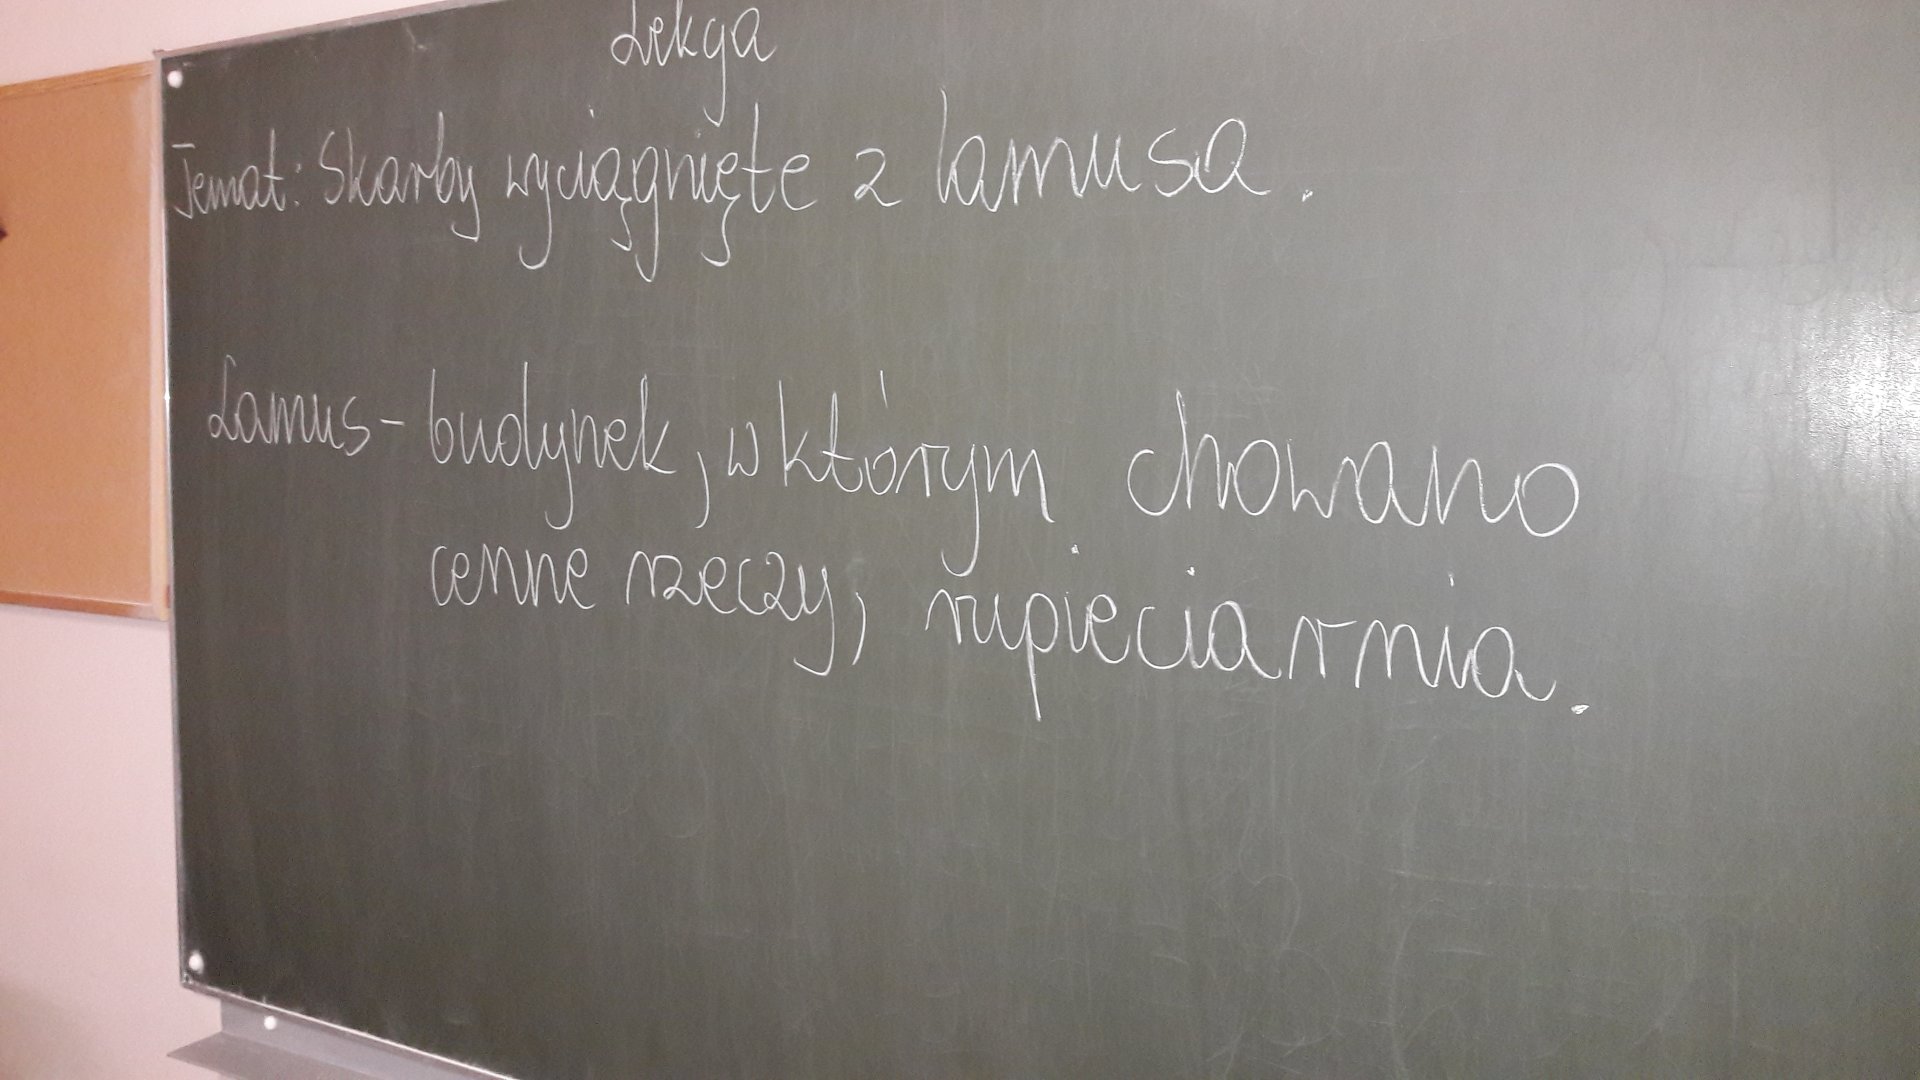 Lekcja
Temat: Skarby wyciągnięte z lamusa.
Lamus - budynek, w którym chowano
cenne rzeczy, rupieciarnia.